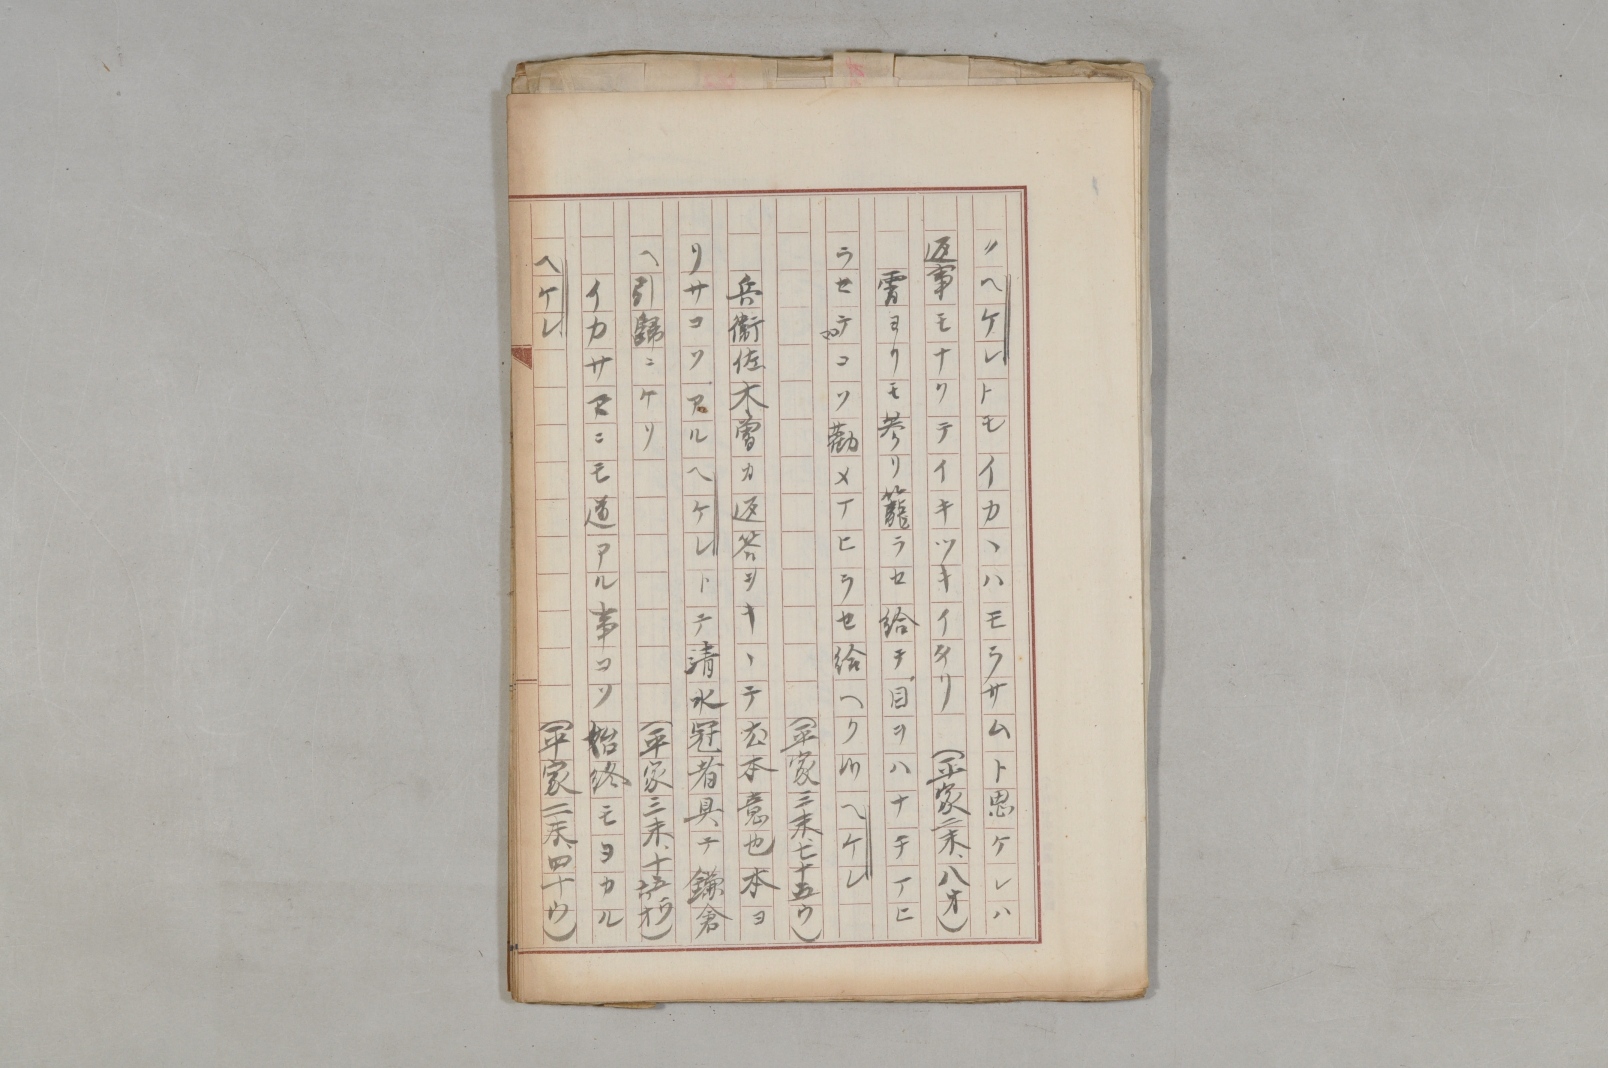 〃ヘケレトモイカヽハモラサムト思ケレハ
返事モナクテイキツキイタリ（平家二末、八オ）
霄ヨリモ参リ籠ラセ給テ目ヲハナチテアヒ
ラセテコソ勸メアヒラセ給ヘク候ヘケレ
（平家三末、七十五ウ）
兵衞佐木曽カ返答ヲキヽテ尤本意也本ヨ
リサコソアルヘケレトテ清水冠者具テ鎌倉
ヘ引歸ニケリ（平家三末、十五ウ
イカサマニモ道アル事コソ始終モヨカル
ヘケレ（平家二末、四十ウ）